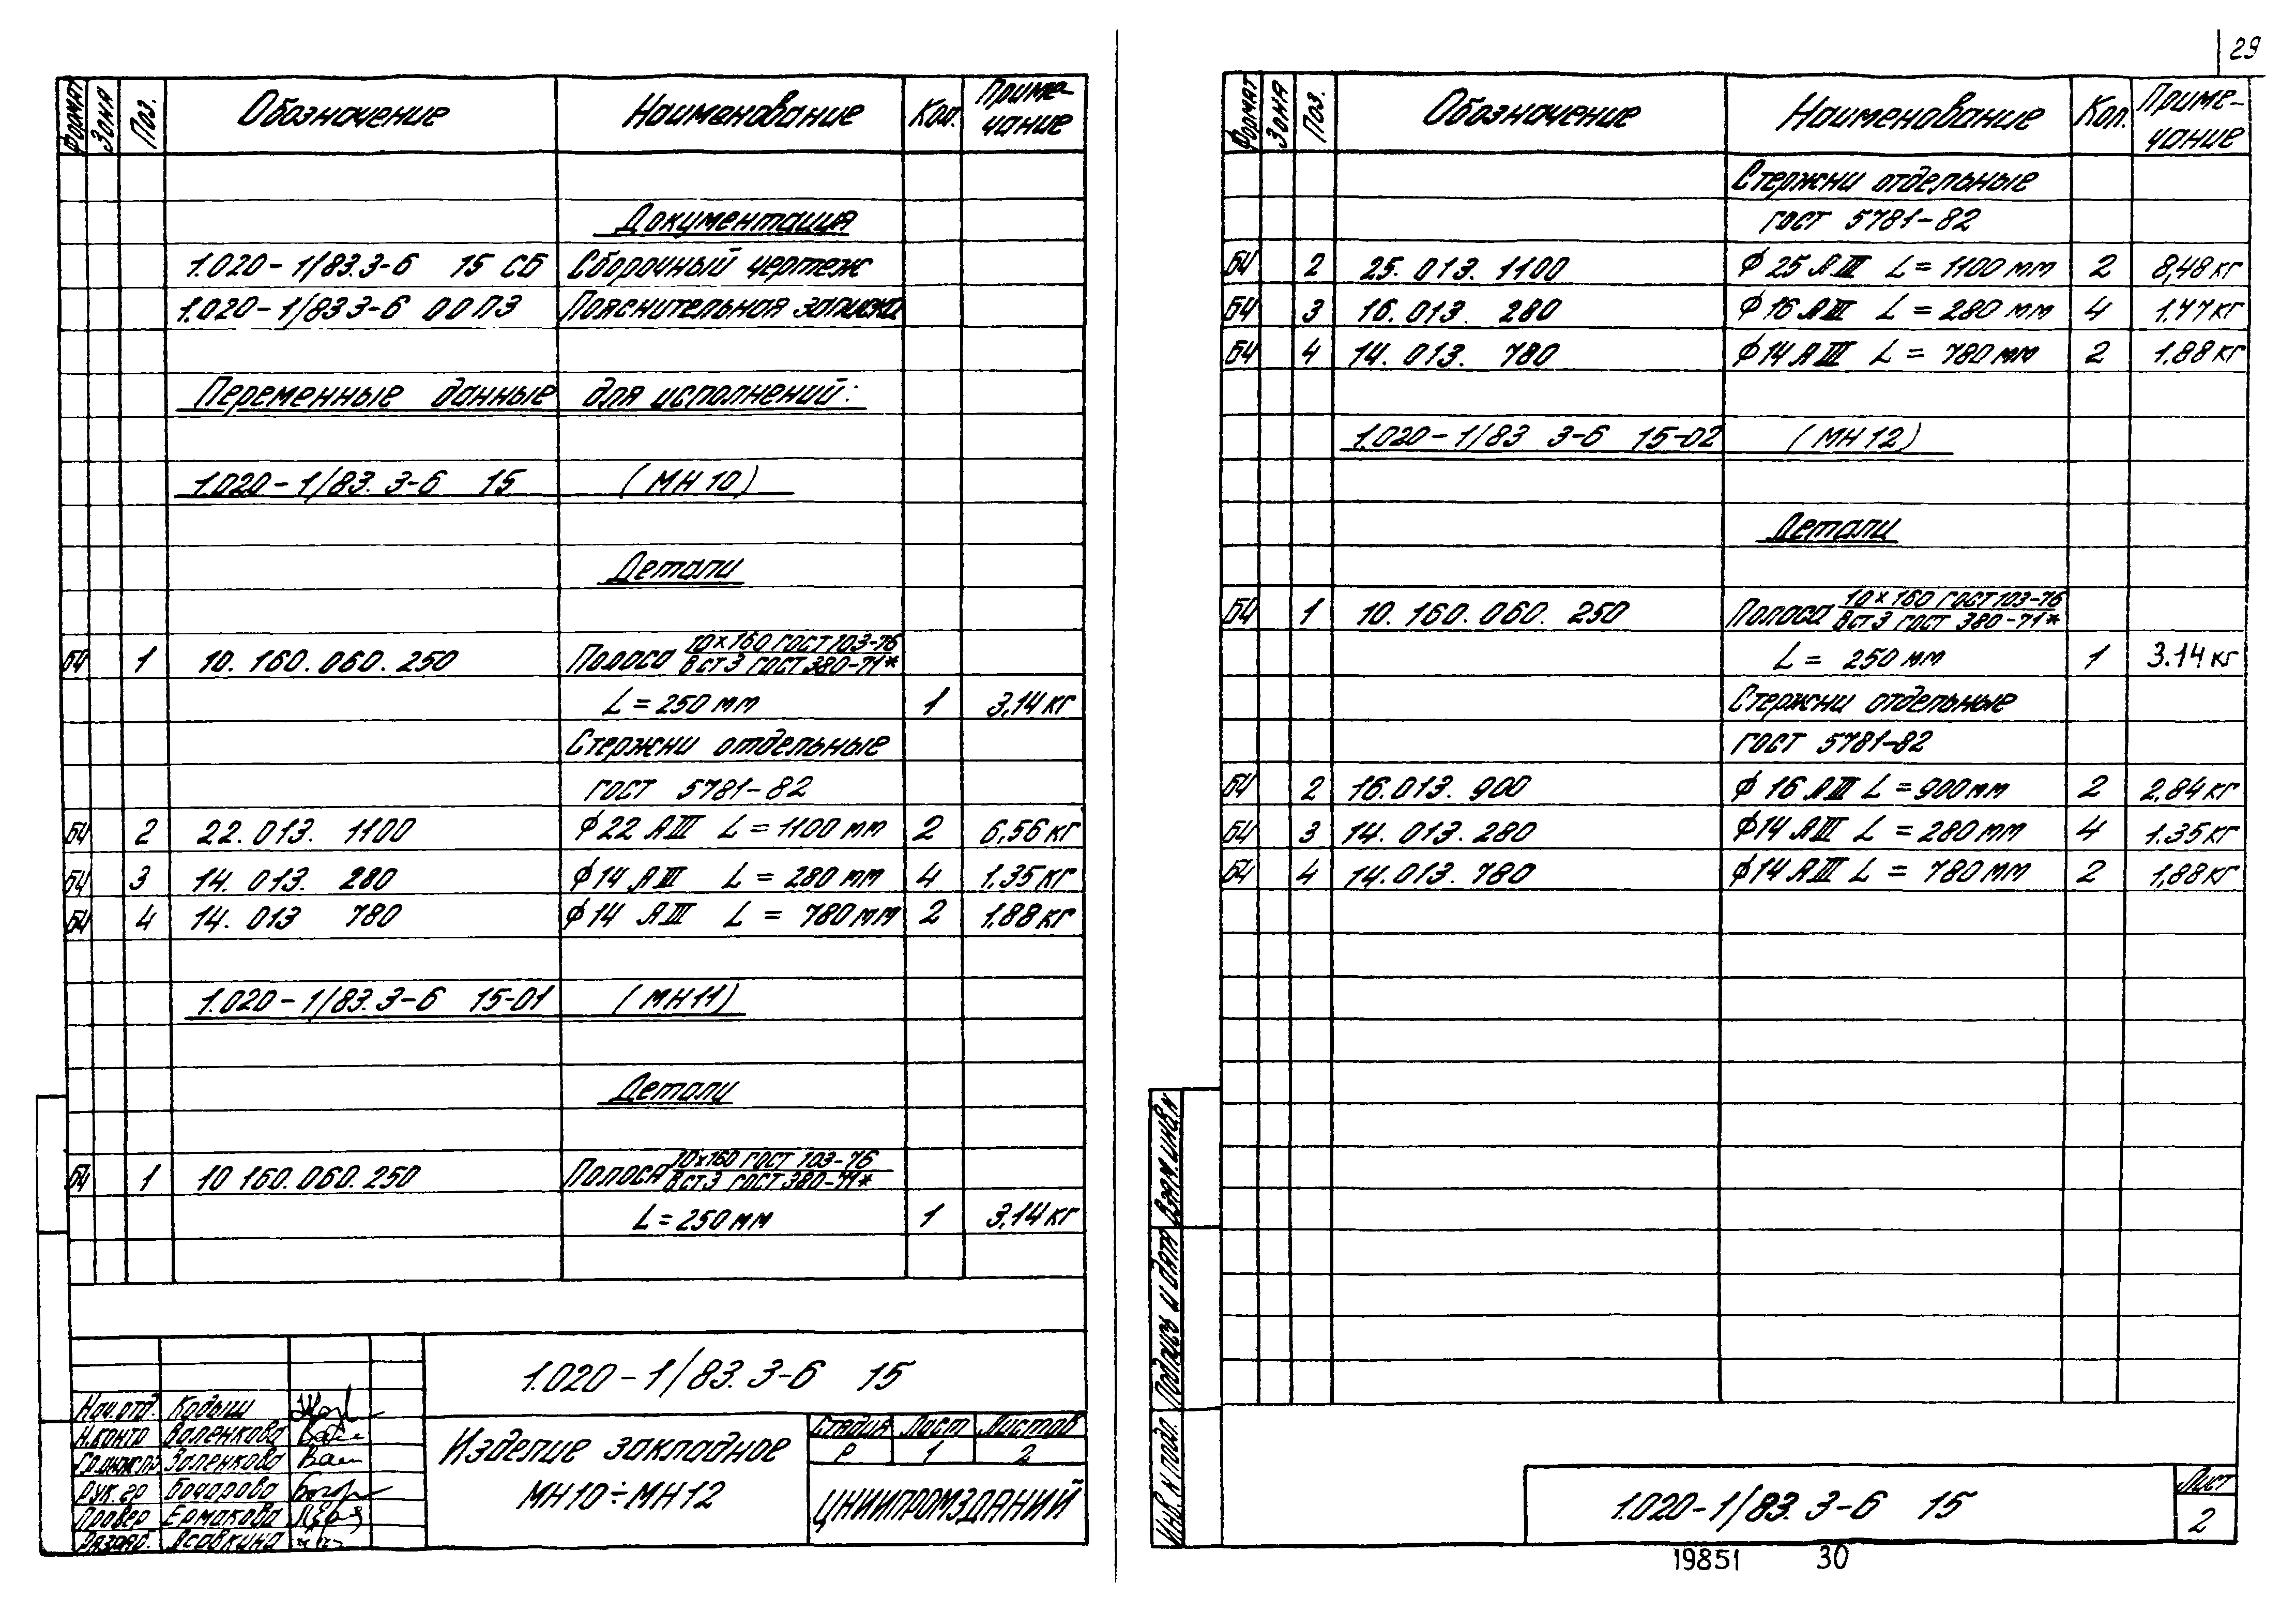 29
Формат Зона Поз. Обозначение Наименование Кол. Приме-
чание
Документация
1.020-1/83.3-6 15 СБ Сборочный чертеж
1.020-1/83 3-6 00 ПЗ Пояснительная записка
Переменные данные для исполнений:
1.020-1/83. 3-6 15 (МН 10)
Детали
БЧ 1 10. 160. 060. 250 Полоса 10×160 ГОСТ 103-76
В ст 3 ГОСТ 380-71*
L = 250 мм 1 3,14 кг
Стержни отдельные
ГОСТ 5781-82
БЧ 2 22. 013. 1100 Ф 22 АIII L = 1100 мм 2 6,56 кг
БЧ 3 14. 013. 280 Ф 14 АIII L = 280 мм 4 1.35 кг
БЧ 4 14. 013 780 Ф 14 АIII L = 780 мм 2 1.88 кг
1.020-1/83. 3-6 15-01 (МН 11)
Детали
БЧ 1 10 160. 060. 250 Полоса 10×160 ГОСТ 103-76
В ст.3 ГОСТ 380-71*
L = 250 мм 1 3,14 кг
1.020-1/83. 3-6 15
Нач.отд. Кодыш
Н.контр Валенкова
Валенкова
Рук.гр Бочарова
Провер Ермакова
Разраб.
Изделие закладное
МН10÷МН12
Стадия Лист Листов
Р 1 2
ЦНИИПРОМЗДАНИЙ
Формат Зона Поз. Обозначение Наименование Кол. Приме-
чание
Стержни отдельные
ГОСТ 5781-82
БЧ 2 25. 013. 1100 Ф 25 АIII L = 1100 мм 2 8,48 кг
БЧ 3 16. 013. 280 Ф 16 АIII L = 280 мм 4 1.77 кг
БЧ 4 14. 013. 780 Ф 14 АIII L = 780 мм 2 1.88 кг
1.020-1/83 3-6 15-02 (МН 12)
Детали
БЧ 1 10. 160. 060. 250 Полоса 10×160 ГОСТ 103-76
В ст 3 ГОСТ 380-71*
L = 250 мм 1 3.14 кг
Стержни отдельные
ГОСТ 5781-82
БЧ 2 16.013. 900 Ф 16 АIII L = 900 мм 2 2,84 кг
БЧ 3 14. 013. 280 Ф 14 АIII L = 280 мм 4 1.35 кг
БЧ 4 14. 013. 780 Ф 14 АIII L = 780 мм 2 1,88 кг
Взам.инв.N
Подпись и дата
Инв.N подл.
1.020-1/83. 3-6 15
Лист
2
19851 30